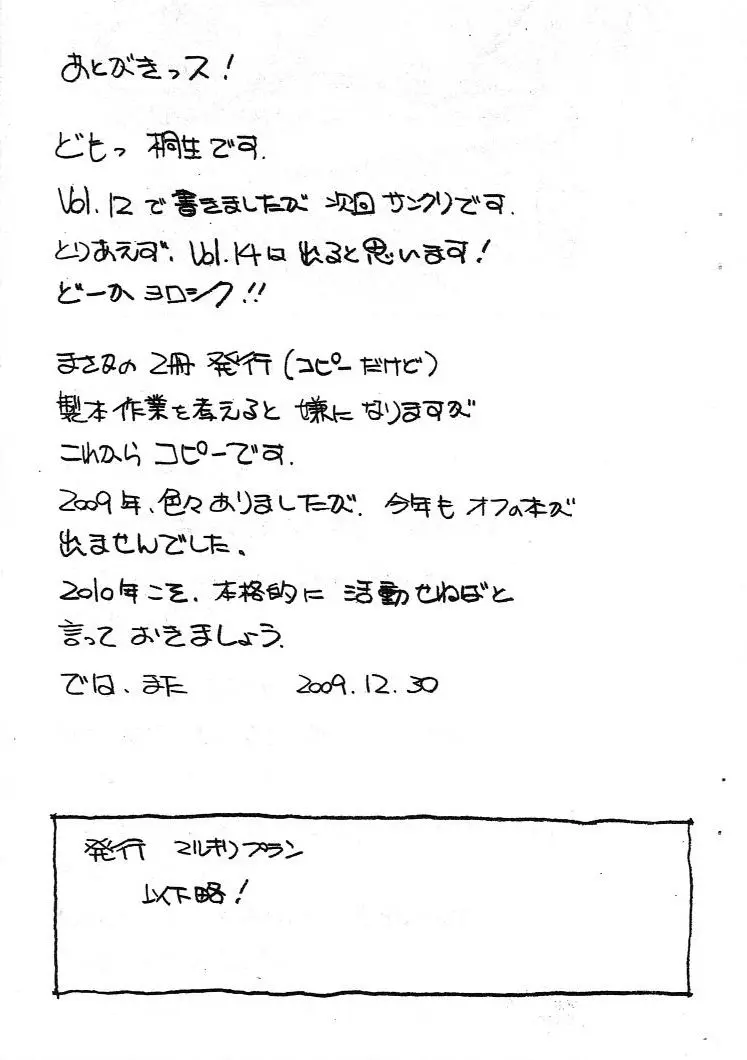 あとがきっス!
どもっ 桐生です.
Vol.12で書きましたが 次回サンクリです.
とりあえず、Vol.14は出ると思います!
どーか ヨロシク!!
まさかの 2冊 発行(コピーだけど)
製本作業を考えると 嫌になりますが
これから コピーです.
2009年、色々ありましたが. 今年も オフの本が
出ませんでした。
2010年こそ. 本格的に 活動せねばと
言って おきましょう.
では、また 2009.12.30
発行 マルキリプラン
以下略!